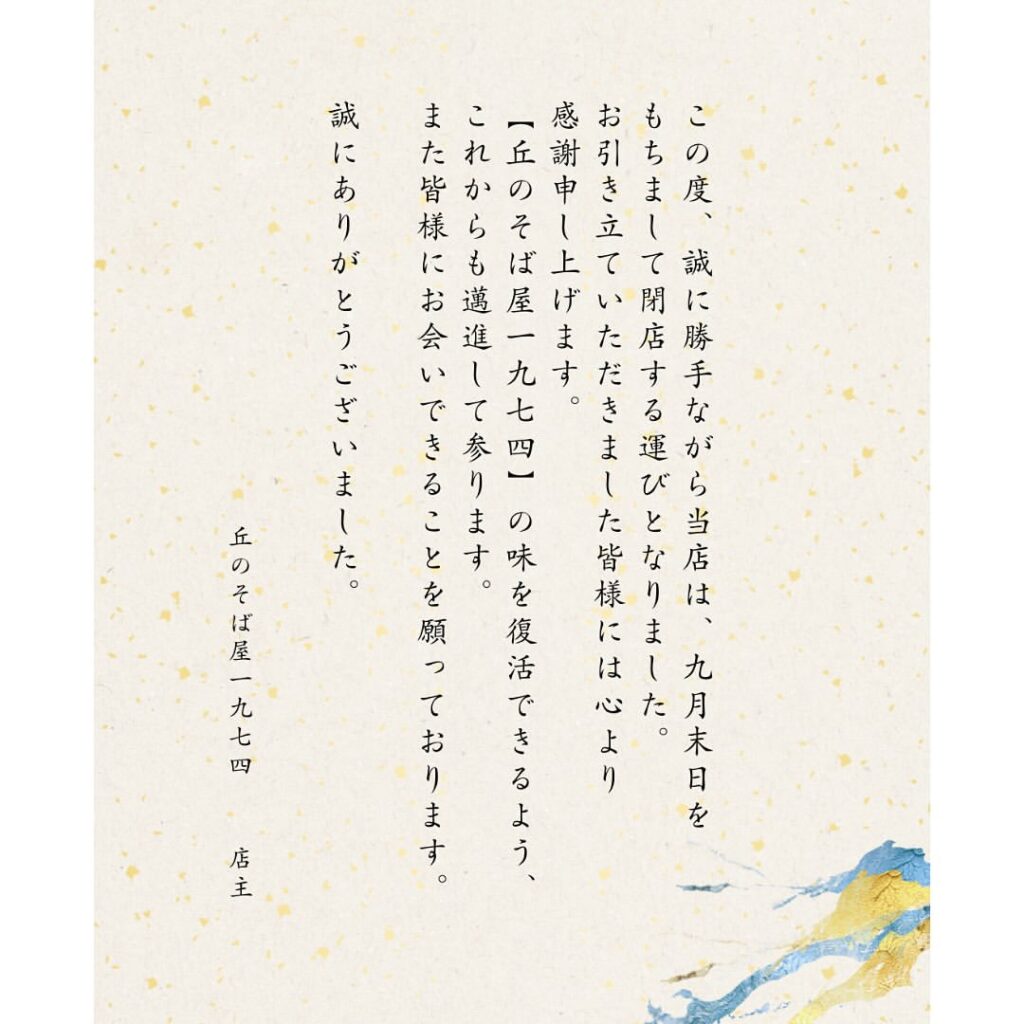 この度、誠に勝手ながら当店は、九月末日を
もちまして閉店する運びとなりました。
お引き立ていただきました皆様には心より
感謝申し上げます。
【丘のそば屋一九七四】の味を復活できるよう、
これからも邁進して参ります。
また皆様にお会いできることを願っております。
誠にありがとうございました。
丘のそば屋一九七四　店主